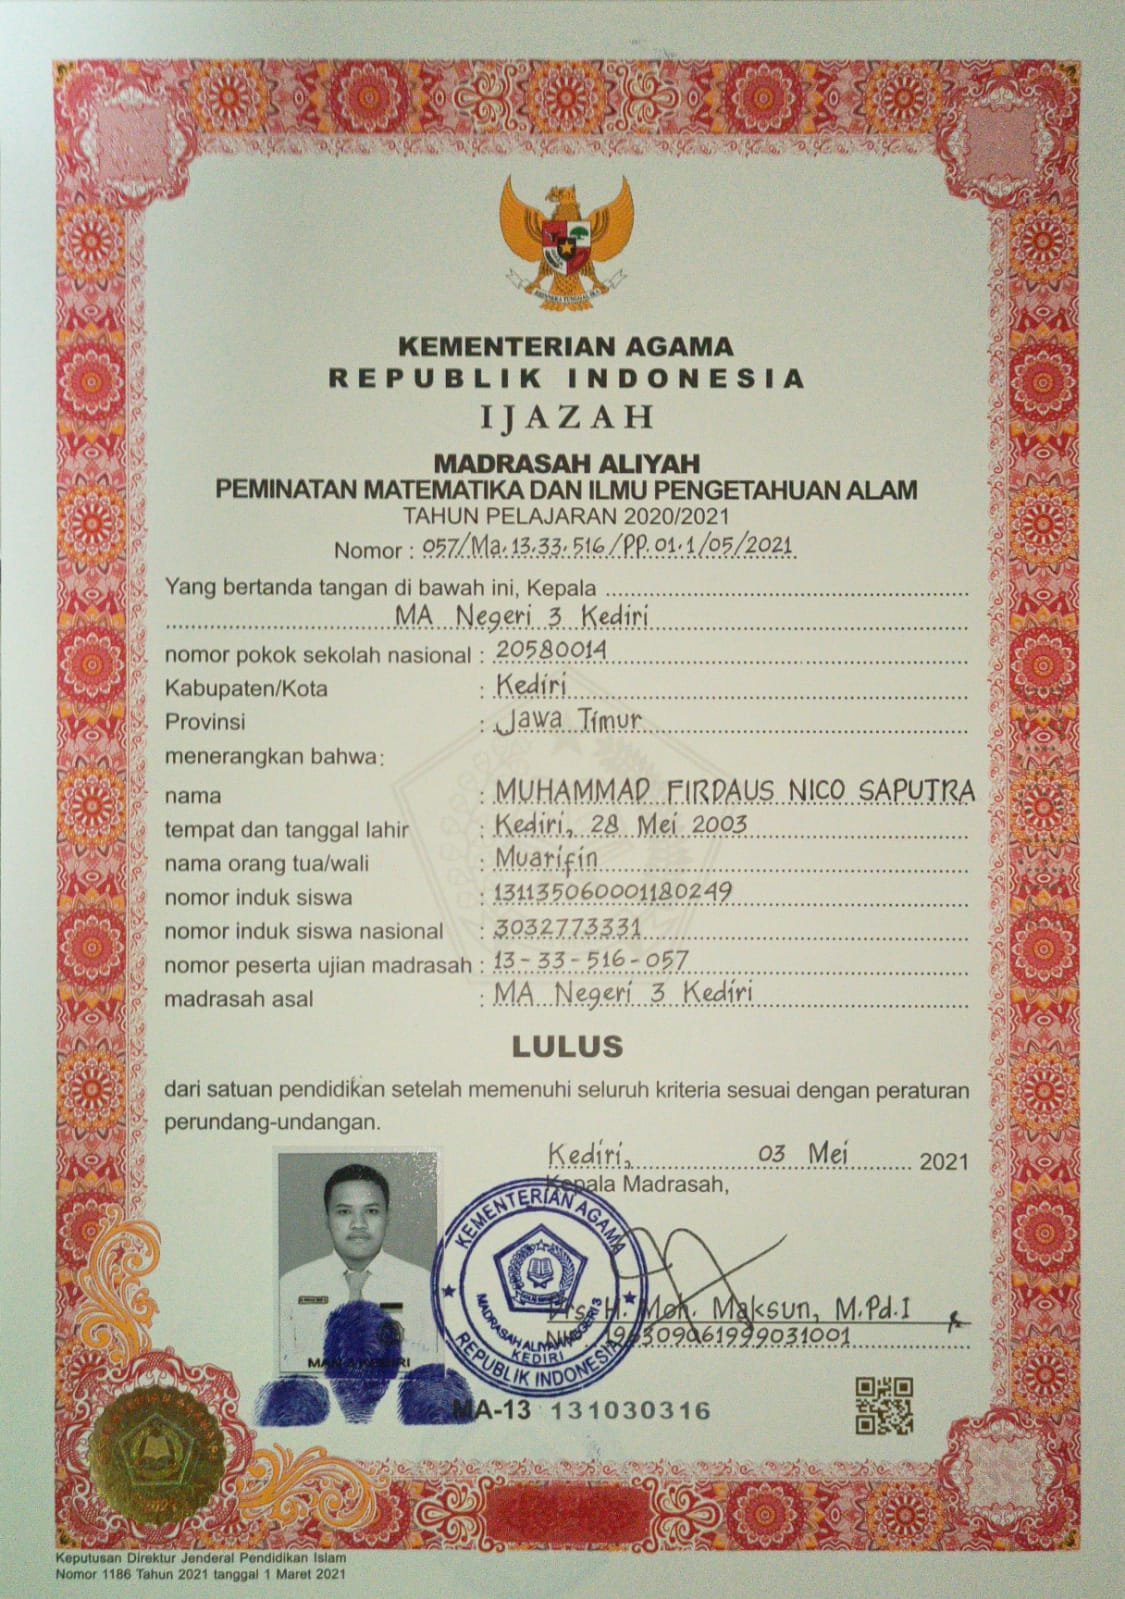 KEMENTERIAN AGAMA
REPUBLIK INDONESIA
IJAZAH
MADRASAH ALIYAH
PEMINATAN MATEMATIKA DAN ILMU PENGETAHUAN ALAM
TAHUN PELAJARAN 2020/2021
Nomor : 057/Ma.13.33.516/PP.01.1/05/2021
Yang bertanda tangan di bawah ini, Kepala
MA Negeri 3 Kediri
nomor pokok sekolah nasional : 20580014
Kabupaten/Kota : Kediri
Provinsi : Jawa Timur
menerangkan bahwa:
nama : MUHAMMAD FIRDAUS NICO SAPUTRA
tempat dan tanggal lahir : Kediri, 28 Mei 2003
nama orang tua/wali : Muarifin
nomor induk siswa : 131135060001180249
nomor induk siswa nasional : 3032773331
nomor peserta ujian madrasah : 13-33-516-057
madrasah asal : MA Negeri 3 Kediri
LULUS
dari satuan pendidikan setelah memenuhi seluruh kriteria sesuai dengan peraturan
perundang-undangan.
Kediri, 03 Mei 2021
Kepala Madrasah,
KEMENTERIAN AGAMA
MADRASAH ALIYAH NEGERI 3
KEDIRI
REPUBLIK INDONESIA
Drs. H. Moh. Maksun, M.Pd.I
196309061999031001
MAN 3 KEDIRI
MA-13 131030316
Keputusan Direktur Jenderal Pendidikan Islam
Nomor 1186 Tahun 2021 tanggal 1 Maret 2021